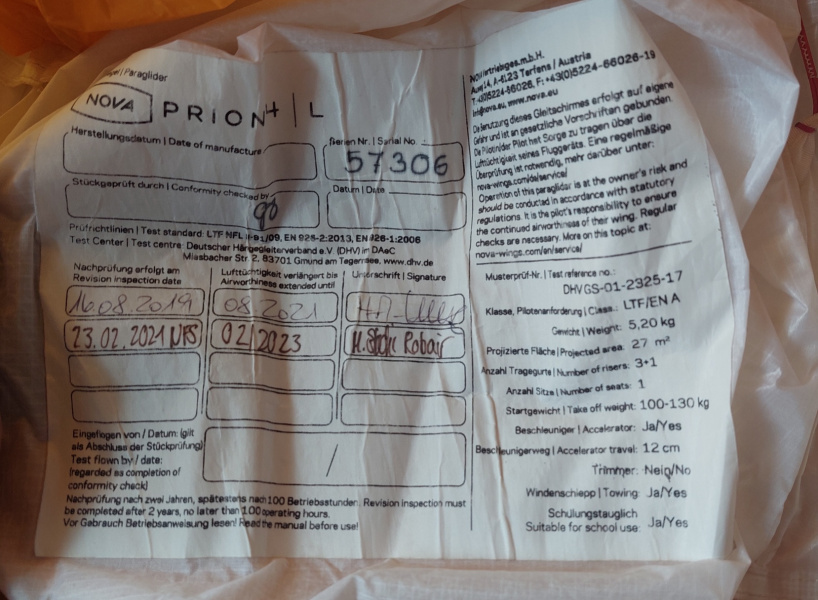 Paraglider
NOVA PRION 4 | L
Herstellungsdatum | Date of manufacture
Serien Nr. | Serial No.
57306
Stückgeprüft durch | Conformity checked by
Datum | Date
Prüfrichtlinien | Test standard: LTF NFL II-91/09, EN 926-2:2013, EN 926-1:2006
Test Center | Test centre: Deutscher Hängegleiterverband e.V. (DHV) im DAeC
Miesbacher Str. 2, 83701 Gmund am Tegernsee, www.dhv.de
Nachprüfung erfolgt am
Revision inspection date
Lufttüchtigkeit verlängert bis
Airworthiness extended until
Unterschrift | Signature
16.08.2019 08.2021
23.02.2021 02/2023
Eingeflogen von / Datum: (gilt
als Abschluss der Stückprüfung)
Test flown by / date:
(regarded as completion of
conformity check)
/
Nachprüfung nach zwei Jahren, spätestens nach 100 Betriebsstunden. Revision inspection must
be completed after 2 years, no later than 100 operating hours.
Vor Gebrauch Betriebsanweisung lesen! Read the manual before use!
A-6123 Terfens / Austria
T: +43(0)5224-66026, F: +43(0)5224-66026-19
info@nova.eu, www.nova.eu
Die Benutzung dieses Gleitschirmes erfolgt auf eigene
Gefahr und ist an gesetzliche Vorschriften gebunden.
Die Pilotin/der Pilot hat Sorge zu tragen über die
Lufttüchtigkeit seines Fluggeräts. Eine regelmäßige
Überprüfung ist notwendig, mehr darüber unter:
nova-wings.com/de/service/
Operation of this paraglider is at the owner's risk and
should be conducted in accordance with statutory
regulations. It is the pilot's responsibility to ensure
the continued airworthiness of their wing. Regular
checks are necessary. More on this topic at:
nova-wings.com/en/service/
Musterprüf-Nr. | Test reference no.:
DHV GS-01-2325-17
Klasse, Pilotenanforderung | Class.: LTF/EN A
Gewicht | Weight: 5,20 kg
Projizierte Fläche | Projected area: 27 m²
Anzahl Tragegurte | Number of risers: 3+1
Anzahl Sitze | Number of seats: 1
Startgewicht | Take off weight: 100-130 kg
Beschleuniger | Accelerator: Ja/Yes
Beschleunigerweg | Accelerator travel: 12 cm
Trimmer: Nein/No
Windenschlepp | Towing: Ja/Yes
Schulungstauglich
Suitable for school use: Ja/Yes